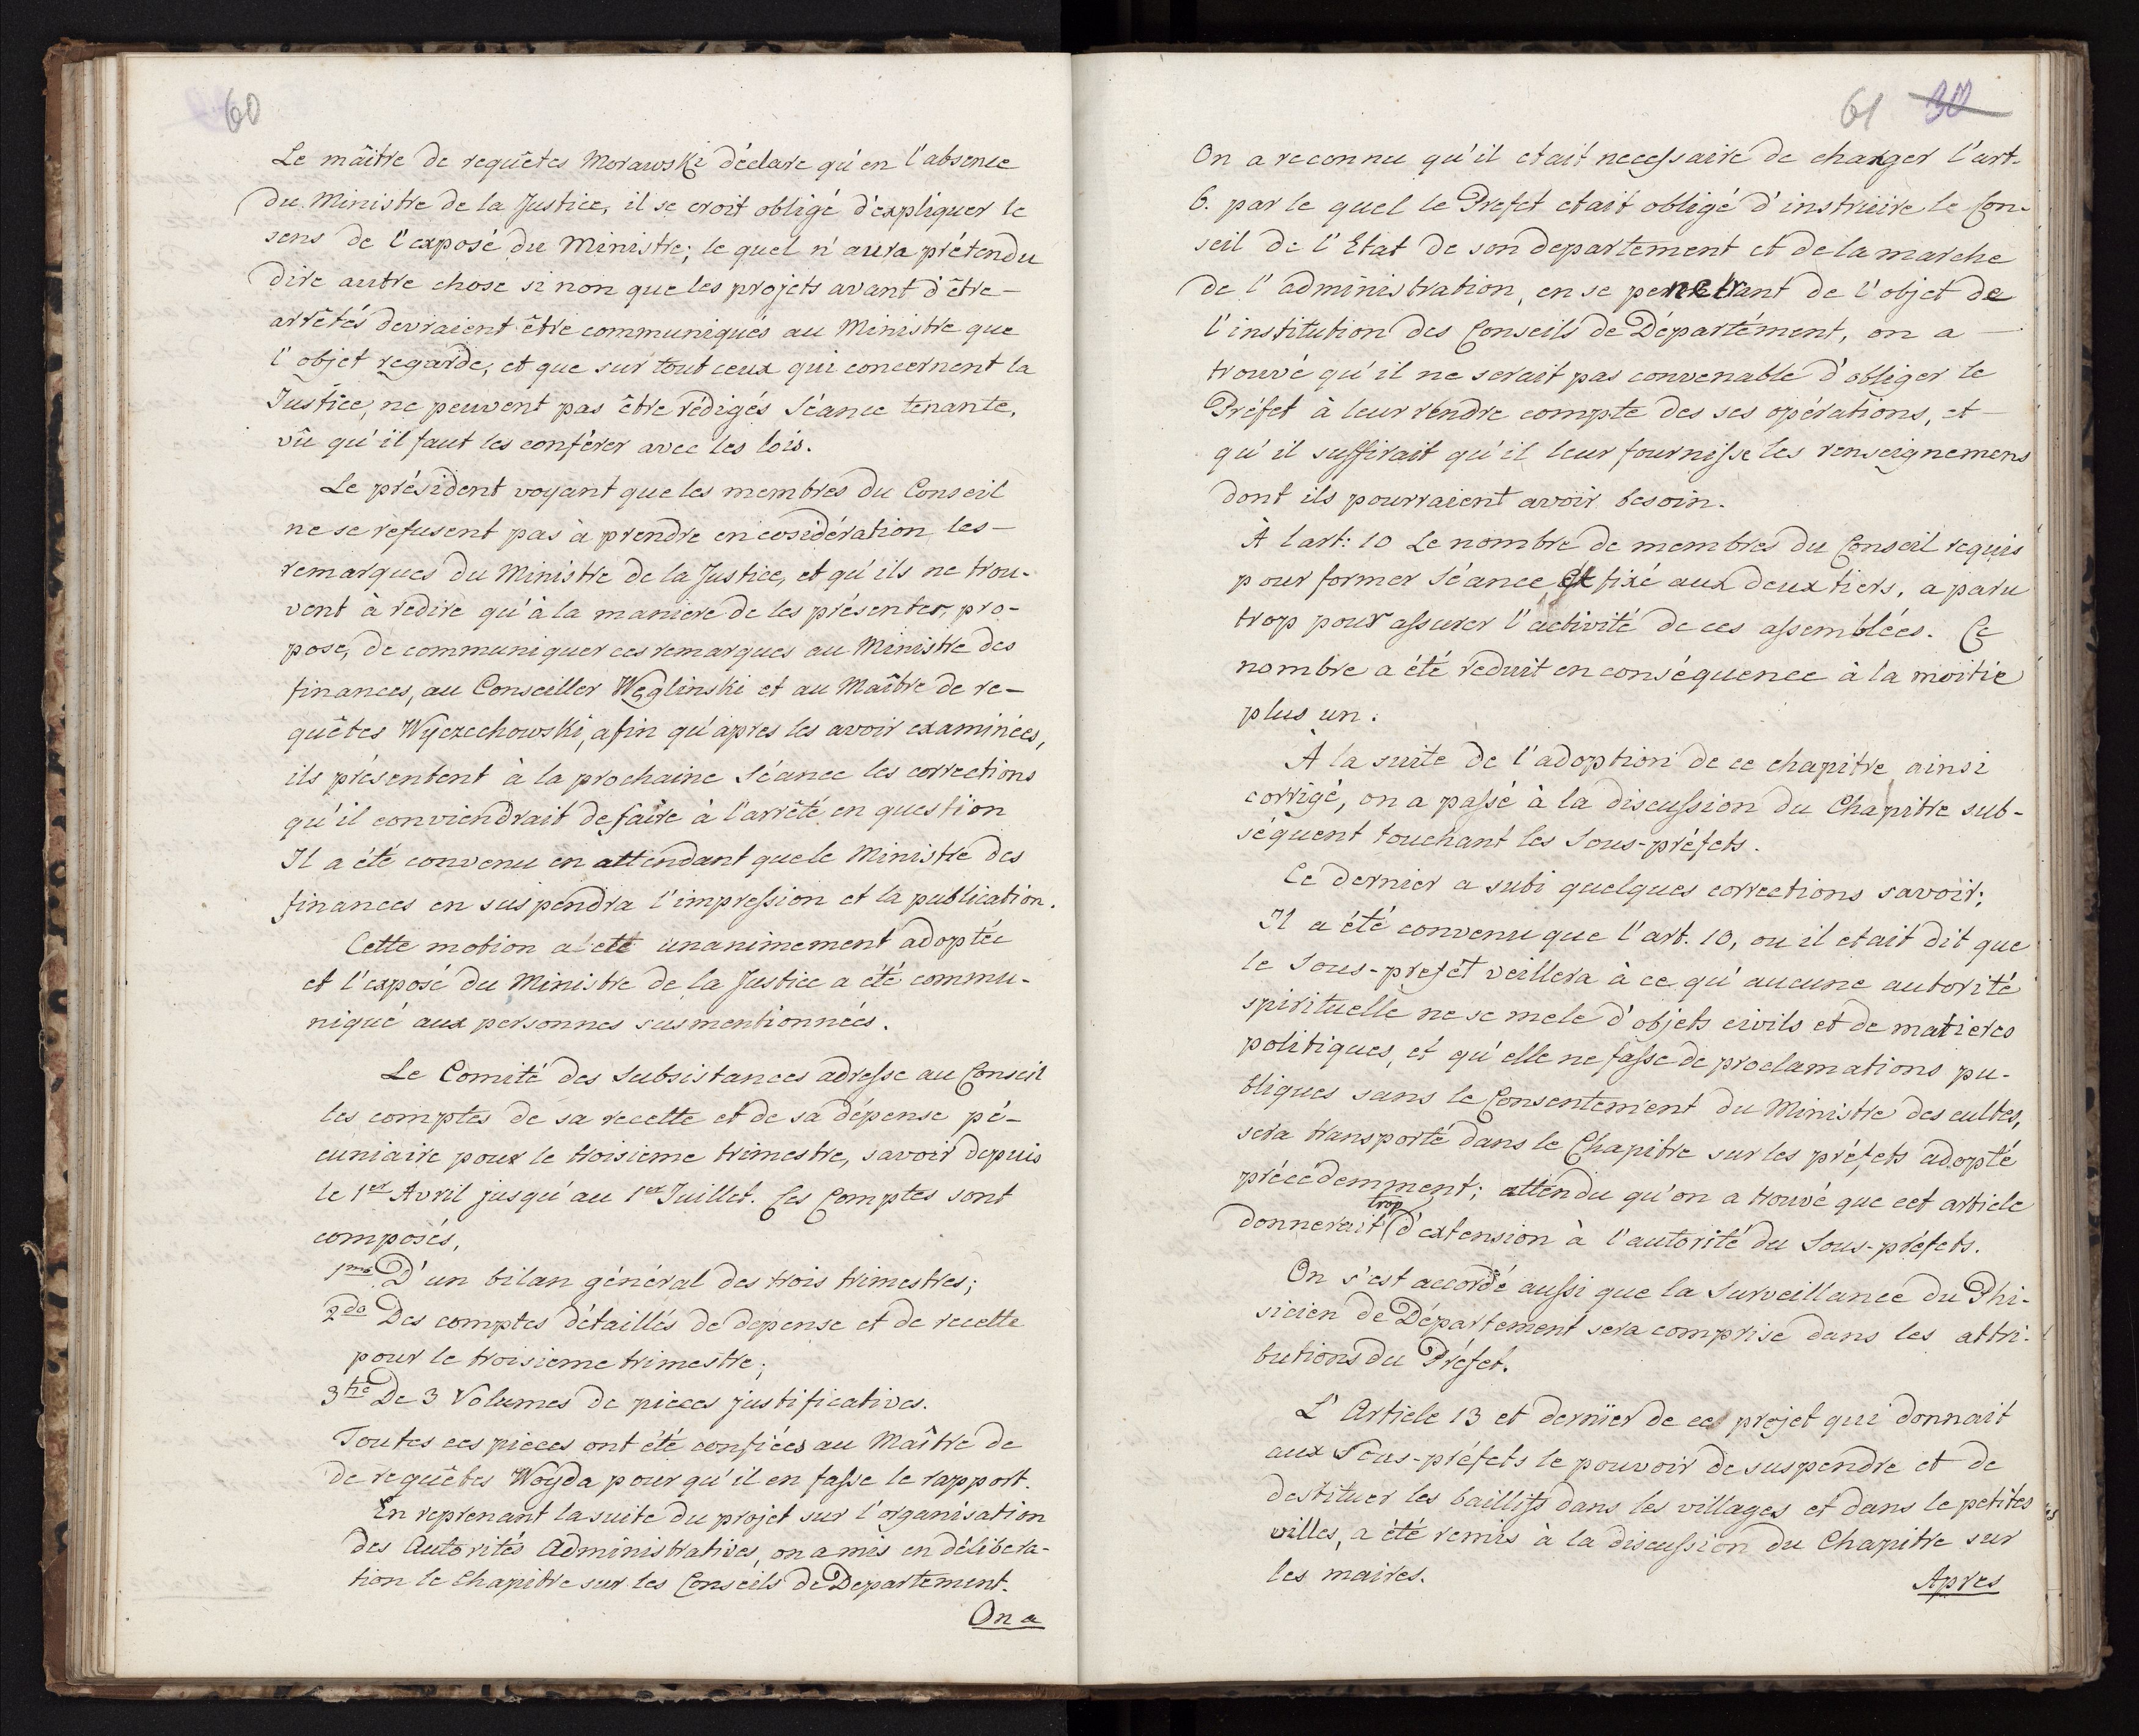 60
Le mâitre de requêtes Morawski déclare qu'en l'absence
du Ministre de la Justice, il se croit obligé d'expliquer le
sens de l'exposé du Ministre; le quel n'aura prétendu
dire autre chose si non que les projets avant d'être —
arrêtés devraient être communiqués au Ministre que
l'objet regarde, et que sur tout ceux qui concernent la
Justice, ne peuvent pas être rédigés Séance tenante,
vû qu'il faut les conférer avec les lois.
Le président voyant que les membres du Conseil
ne se refusent pas à prendre en cosidération les —
remarques du Ministre de la Justice, et qu'ils ne trou-
vent à redire qu'à la maniere de les présenter, pro-
pose, de communiquer ces remarques au Ministre des
finances, au Conseiller Węglinski et au Maître de re-
quêtes Wyczechowski, afin qu'apres les avoir examinées,
ils présentent à la prochaine Séance les corrections
qu'il conviendrait de faire à l'arrêté en question
Il a été convenu en attendant que le Ministre des
finances en suspendra l'impression et la publication.
Cette motion a eté unanimement adoptée
et l'exposé du Ministre de la Justice a été commu-
niqué aux personnes susmentionnées.
Le Comité des Subsistances adresse au Conseil
les comptes de sa recette et de sa dépense pé-
cuniaire pour le troisieme trimestre, savoir depuis
le 1er Avril jusqu'au 1er Juillet. Ces Comptes sont
composés,
1mo D'un bilan général des trois trimestres;
2do Des comptes détaillés de depense et de recette
pour le troisieme trimestre;
3tio De 3 Volumes de pieces justificatives.
Toutes ces pieces ont été confiées au Maître de
de requêtes Woyda pour qu'il en fasse le rapport.
En reprenant la suite du projet sur l'organisation
des Autorités Administratives, on a mis en délibera-
tion le Chapitre sur les Conseils de Departement.
On a
61 30
On a reconnu qu'il etait necessaire de changer l'art.
6. par le quel le Prefet etait obligé d'instruire le Con-
seil de l'Etat de son departement et de la marche
de l'administration, en se penetrant de l'objet de
l'institution des Conseils de Département, on a —
trouvé qu'il ne serait pas convenable d'obliger le
Préfet à leur rendre compte des ses opérations, et —
qu'il suffirait qu'il leur fournisse les renseignemens
dont ils pourraient avoir besoin.
À l'art: 10 Le nombre de membres du Conseil requis
pour former Séance, et fixé aux deux tiers, a paru
trop pour assurer l'activité de ces assemblées. Ce
nombre a été reduit en conséquence à la moitié
plus un.
À la suite de l'adoption de ce chapitre ainsi
corrigé, on a passé à la discussion du Chapitre sub-
séquent touchant les Sous-préfets.
Ce dernier a subi quelques corrections savoir;
Il a été convenu que l'art. 10, ou il etait dit que
le Sous-prefet veillera à ce qu'aucune autorité
spirituelle ne se mele d'objets civils et de matieres
politiques, et qu'elle ne fasse de proclamations pu-
bliques sans le Consentement du Ministre des cultes,
sera transporté dans le Chapitre sur les préfets adopté
précédemment; attendu qu'on a trouvé que cet article
trop
donnerait d'extension à l'autorité du Sous-préfets.
On s'est accordé aussi que la Surveillance du Phi-
sicien de Département sera comprise dans les attri-
butions du Préfet.
L'Article 13 et dernier de ce projet qui donnait
aux Sous-préfets le pouvoir de suspendre et de
destituer les baillifs dans les villages et dans le petites
villes, a été remis à la discussion du Chapitre sur
les maires.
Apres